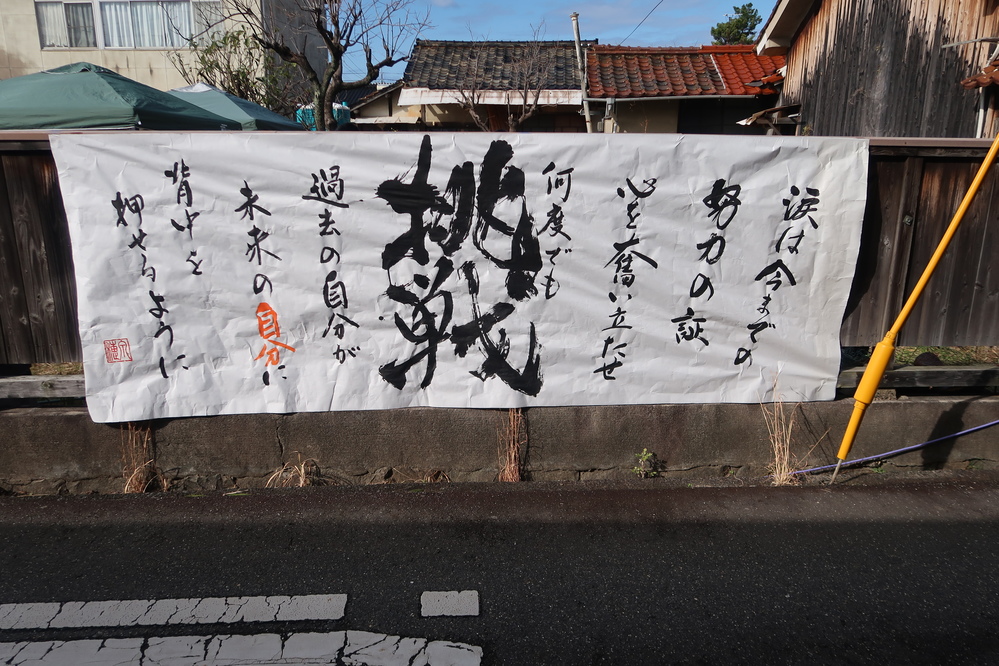 涙は今までの
努力の証
心を奮い立たせ
何度でも
挑戦
過去の自分が
未来の自分に
背中を
押せるように